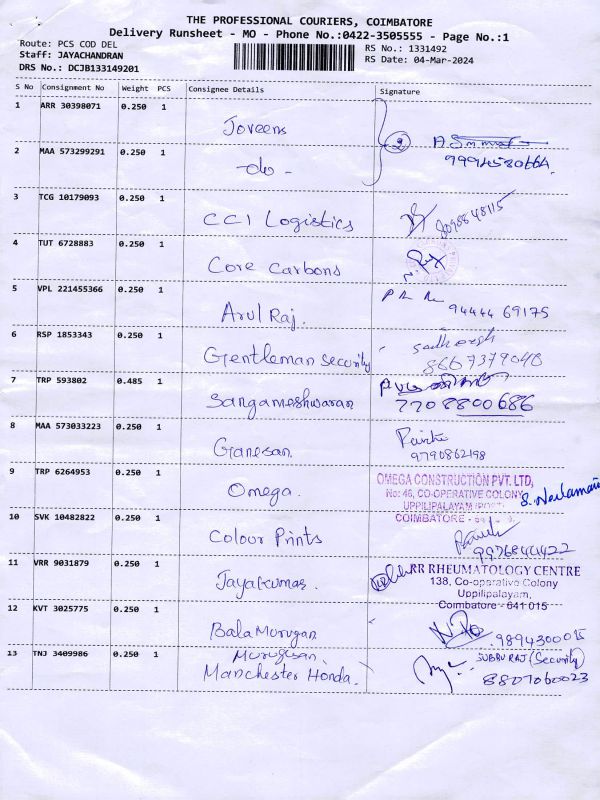 THE PROFESSIONAL COURIERS, COIMBATORE
Delivery Runsheet - MO - Phone No.:0422-3505555 - Page No.:1
Route: PCS COD DEL
Staff: JAYACHANDRAN
DRS No.: DCJB133149201
RS No.: 1331492
RS Date: 04-Mar-2024
S No Consignment No Weight PCS Consignee Details Signature
1 ARR 30398071 0.250 1 Joveens
2 MAA 573299291 0.250 1 -do-
3 TCG 10179093 0.250 1 CCI Logistics
4 TUT 6728883 0.250 1 Core Carbons
5 VPL 221455366 0.250 1 Arul Raj. 94444 69175
6 RSP 1853343 0.250 1 Gentleman security 8667379048
7 TRP 593802 0.485 1 Sangameshwaran 7708800686
8 MAA 573033223 0.250 1 Ganesan. 9790862198
9 TRP 6264953 0.250 1 Omega.
OMEGA CONSTRUCTION PVT. LTD,
No: 46, CO-OPERATIVE COLONY
UPPILIPALAYAM (POST)
COIMBATORE -
10 SVK 10482822 0.250 1 Colour Prints 9976844422
11 VRR 9031879 0.250 1 Jayakumar.
RR RHEUMATOLOGY CENTRE
138, Co-operative Colony
Uppilipalayam,
Coimbatore - 641 015
12 KVT 3025775 0.250 1 Bala Murugan 9894300015
13 TNJ 3409986 0.250 1 Murugesan. SUBBU RAJ (Security)
Manchester Honda. 8807060023